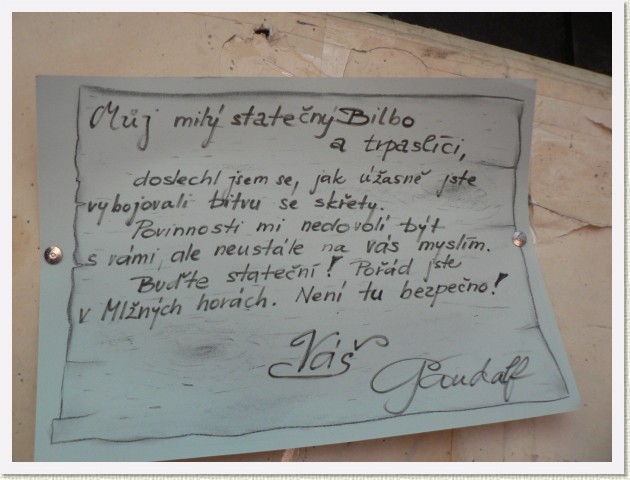 Můj milý statečný Bilbo
a trpaslíci,
doslechl jsem se, jak úžasně jste
vybojovali bitvu se skřety.
Povinnosti mi nedovolí být
s vámi, ale neustále na vás myslím.
Buďte stateční! Pořád jste
v Mlžných horách. Není tu bezpečno!
Váš
Gandalf